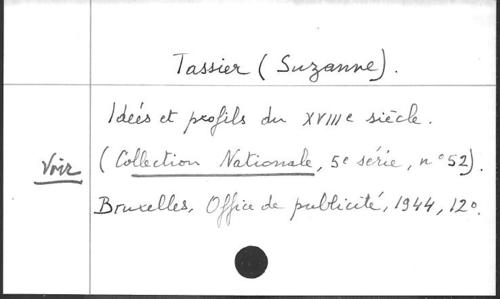 Tassier (Suzanne).
Idées et profils du XVIIIe siècle.
Voir (Collection Nationale, 5e série, n° 52).
Bruxelles, Office de publicité, 1944, 12°.